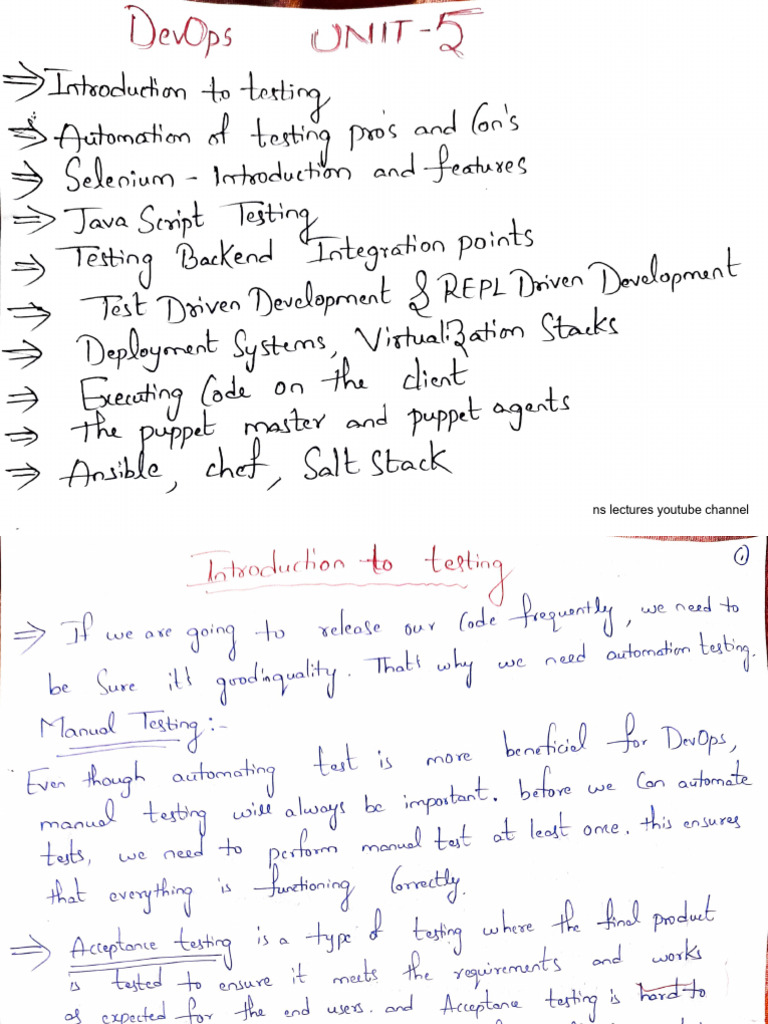 DevOps UNIT-5
⇒ Introduction to testing
⇒ Automation of testing pro's and Con's
⇒ Selenium - Introduction and features
⇒ Java Script Testing
⇒ Testing Backend Integration points
⇒ Test Driven Development & REPL Driven Development
⇒ Deployment Systems, Virtualization Stacks
⇒ Executing Code on the client
⇒ the puppet master and puppet agents
⇒ Ansible, chef, Salt Stack
ns lectures youtube channel
Introduction to testing
1
⇒ If we are going to release our Code frequently, we need to
be Sure it's good in quality. That's why we need automation testing.
Manual Testing :-
Even though automating test is more beneficial for DevOps,
manual testing will always be important. before we Can automate
tests, we need to perform manual test at least one. this ensures
that everything is functioning Correctly.
⇒ Acceptance testing is a type of testing where the final product
is tested to ensure it meets the requirements and works
as expected for the end users. and Acceptance testing is hard to